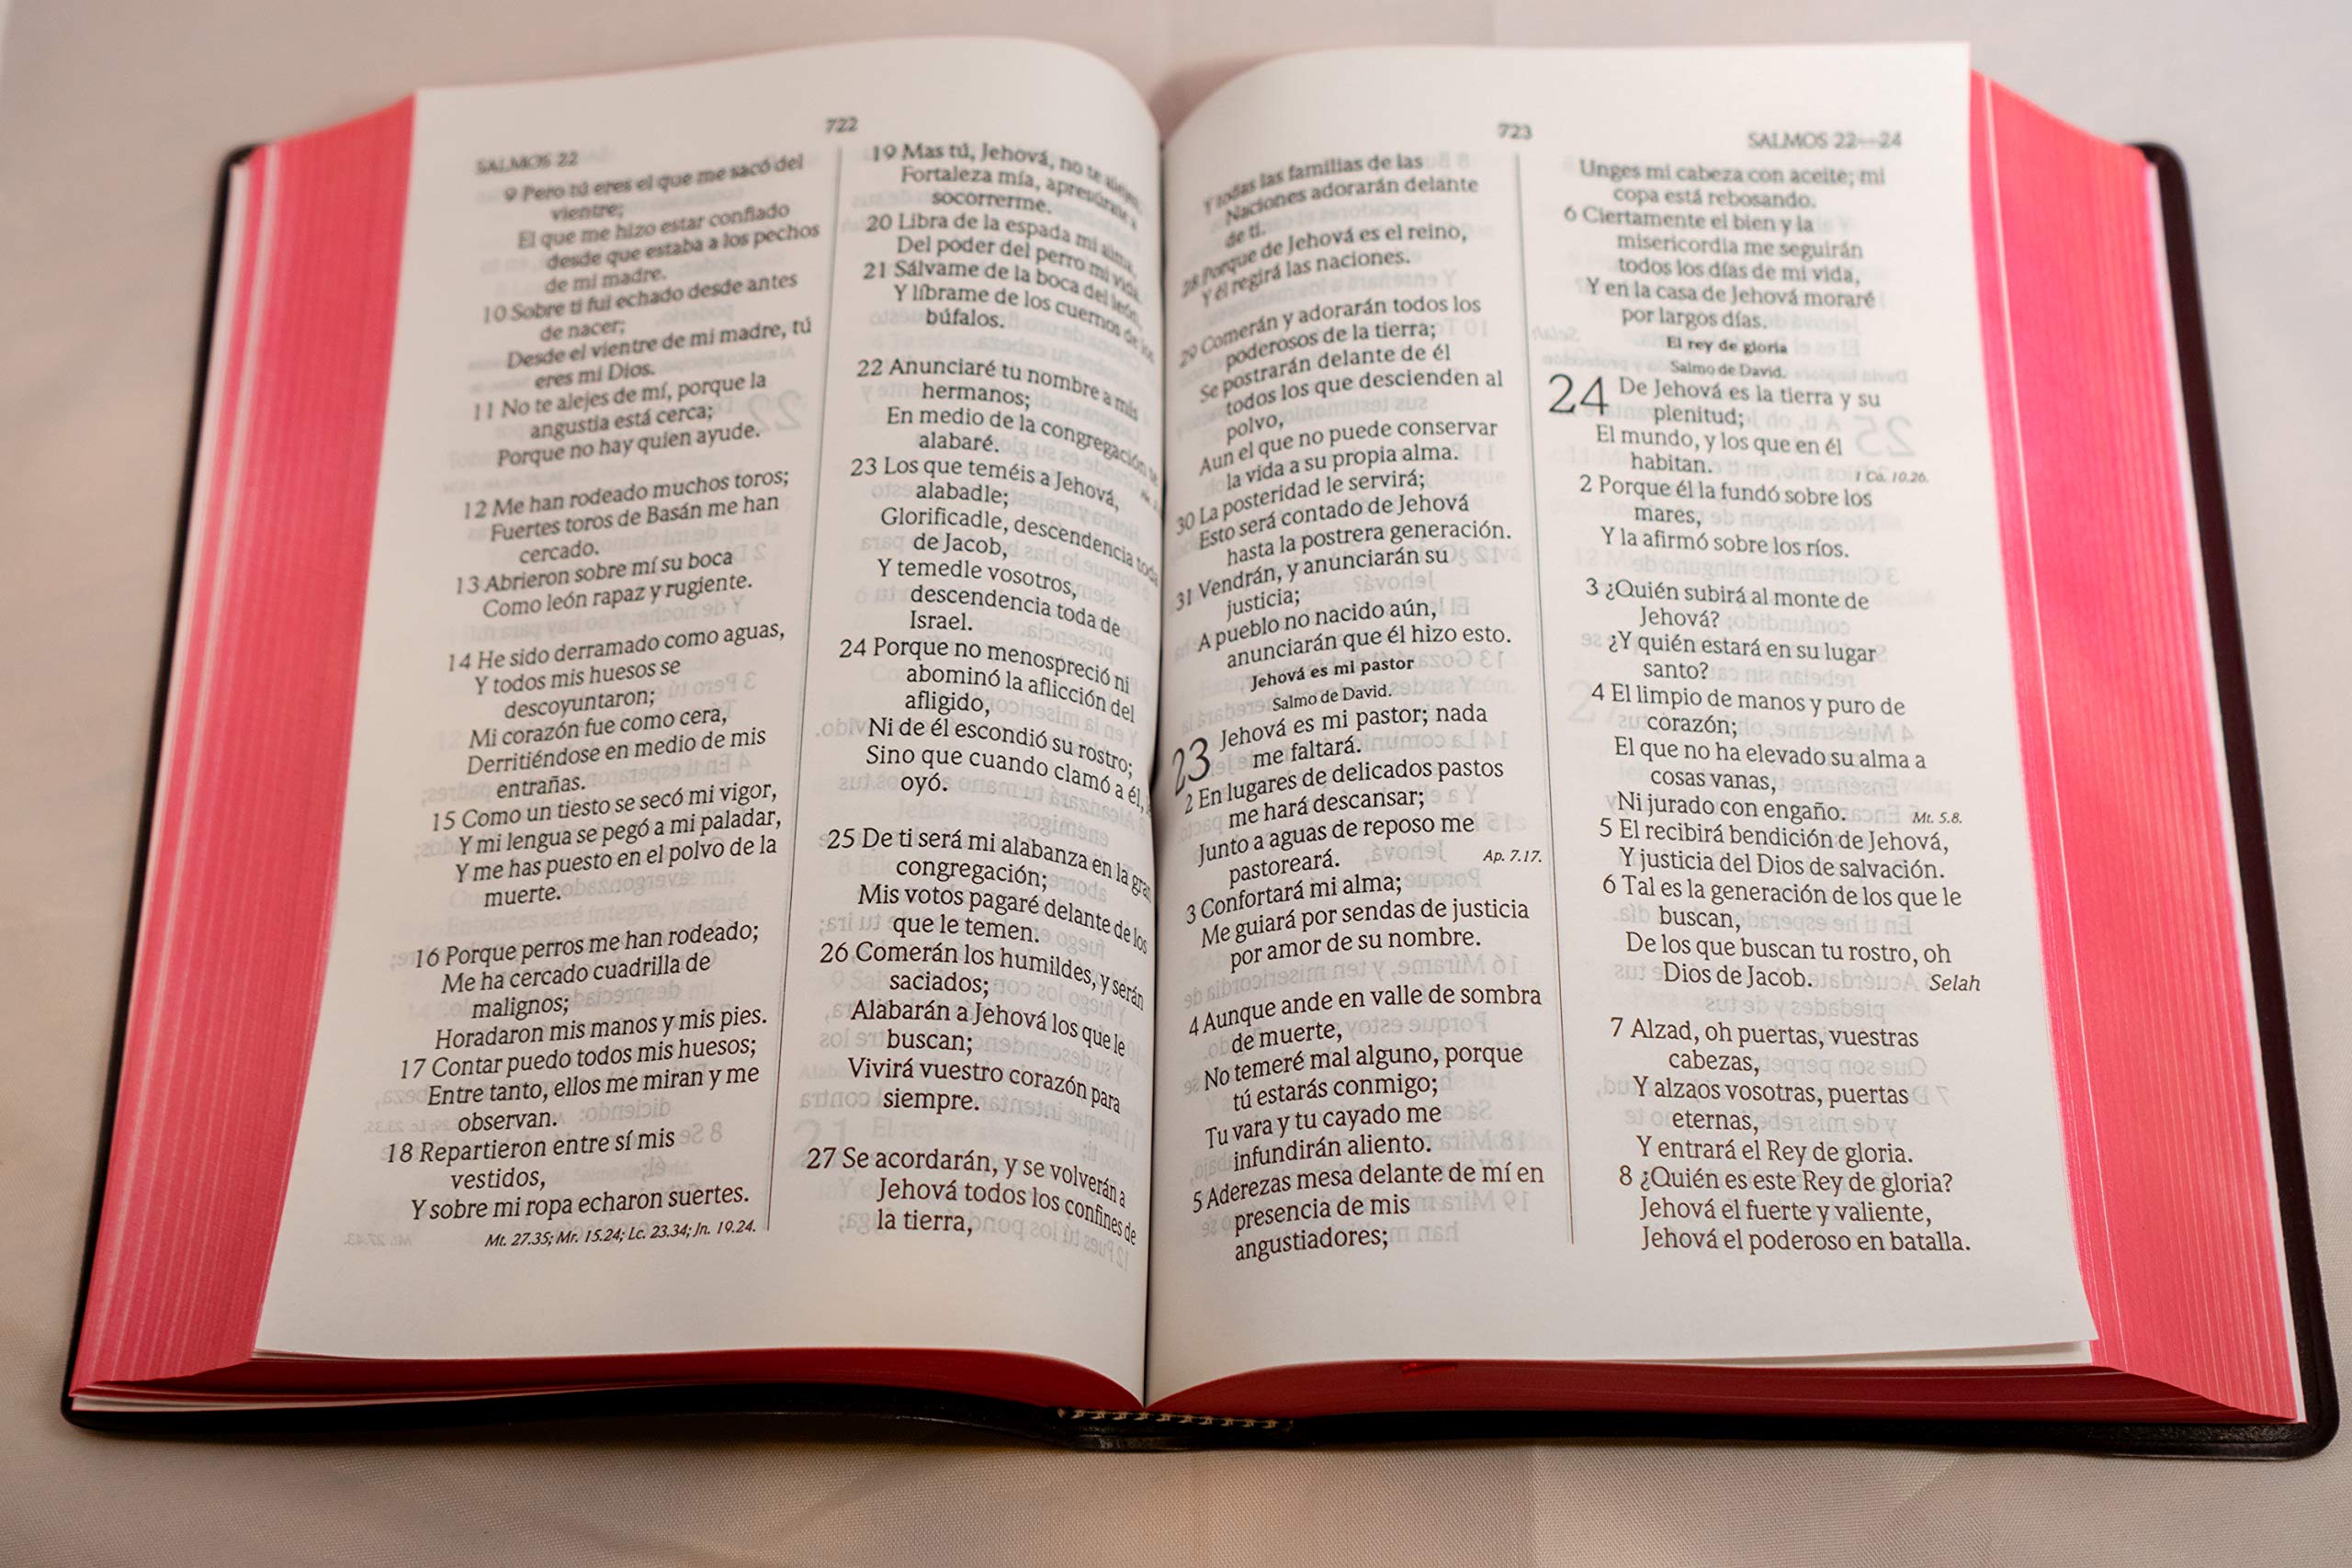 722
SALMOS 22
9 Pero tú eres el que me sacó del
vientre;
El que me hizo estar confiado
desde que estaba a los pechos
de mi madre.
10 Sobre ti fui echado desde antes
de nacer;
Desde el vientre de mi madre, tú
eres mi Dios.
11 No te alejes de mí, porque la
angustia está cerca;
Porque no hay quien ayude.
12 Me han rodeado muchos toros;
Fuertes toros de Basán me han
cercado.
13 Abrieron sobre mí su boca
Como león rapaz y rugiente.
14 He sido derramado como aguas,
Y todos mis huesos se
descoyuntaron;
Mi corazón fue como cera,
Derritiéndose en medio de mis
entrañas.
15 Como un tiesto se secó mi vigor,
Y mi lengua se pegó a mi paladar,
Y me has puesto en el polvo de la
muerte.
16 Porque perros me han rodeado;
Me ha cercado cuadrilla de
malignos;
Horadaron mis manos y mis pies.
17 Contar puedo todos mis huesos;
Entre tanto, ellos me miran y me
observan.
18 Repartieron entre sí mis
vestidos,
Y sobre mi ropa echaron suertes.
Mt. 27.35; Mr. 15.24; Lc. 23.34; Jn. 19.24.
19 Mas tú, Jehová, no te alejes;
Fortaleza mía, apresúrate a
socorrerme.
20 Libra de la espada mi alma,
Del poder del perro mi vida.
21 Sálvame de la boca del león,
Y líbrame de los cuernos de los
búfalos.
22 Anunciaré tu nombre a mis
hermanos;
En medio de la congregación te
alabaré.
23 Los que teméis a Jehová,
alabadle;
Glorificadle, descendencia toda
de Jacob,
Y temedle vosotros,
descendencia toda de
Israel.
24 Porque no menospreció ni
abominó la aflicción del
afligido,
Ni de él escondió su rostro;
Sino que cuando clamó a él,
oyó.
25 De ti será mi alabanza en la gran
congregación;
Mis votos pagaré delante de los
que le temen.
26 Comerán los humildes, y serán
saciados;
Alabarán a Jehová los que le
buscan;
Vivirá vuestro corazón para
siempre.
27 Se acordarán, y se volverán a
Jehová todos los confines de
la tierra,
723
SALMOS 22—24
Y todas las familias de las
Naciones adorarán delante
de ti.
28 Porque de Jehová es el reino,
Y él regirá las naciones.
29 Comerán y adorarán todos los
poderosos de la tierra;
Se postrarán delante de él
todos los que descienden al
polvo,
Aun el que no puede conservar
la vida a su propia alma.
30 La posteridad le servirá;
Esto será contado de Jehová
hasta la postrera generación.
31 Vendrán, y anunciarán su
justicia;
A pueblo no nacido aún,
anunciarán que él hizo esto.
Jehová es mi pastor
Salmo de David.
23 Jehová es mi pastor; nada
me faltará.
2 En lugares de delicados pastos
me hará descansar;
Junto a aguas de reposo me
pastoreará. Ap. 7.17.
3 Confortará mi alma;
Me guiará por sendas de justicia
por amor de su nombre.
4 Aunque ande en valle de sombra
de muerte,
No temeré mal alguno, porque
tú estarás conmigo;
Tu vara y tu cayado me
infundirán aliento.
5 Aderezas mesa delante de mí en
presencia de mis
angustiadores;
Unges mi cabeza con aceite; mi
copa está rebosando.
6 Ciertamente el bien y la
misericordia me seguirán
todos los días de mi vida,
Y en la casa de Jehová moraré
por largos días.
El rey de gloria
Salmo de David.
24 De Jehová es la tierra y su
plenitud;
El mundo, y los que en él
habitan. 1 Co. 10.26.
2 Porque él la fundó sobre los
mares,
Y la afirmó sobre los ríos.
3 ¿Quién subirá al monte de
Jehová?
¿Y quién estará en su lugar
santo?
4 El limpio de manos y puro de
corazón;
El que no ha elevado su alma a
cosas vanas,
Ni jurado con engaño. Mt. 5.8.
5 El recibirá bendición de Jehová,
Y justicia del Dios de salvación.
6 Tal es la generación de los que le
buscan,
De los que buscan tu rostro, oh
Dios de Jacob. Selah
7 Alzad, oh puertas, vuestras
cabezas,
Y alzaos vosotras, puertas
eternas,
Y entrará el Rey de gloria.
8 ¿Quién es este Rey de gloria?
Jehová el fuerte y valiente,
Jehová el poderoso en batalla.